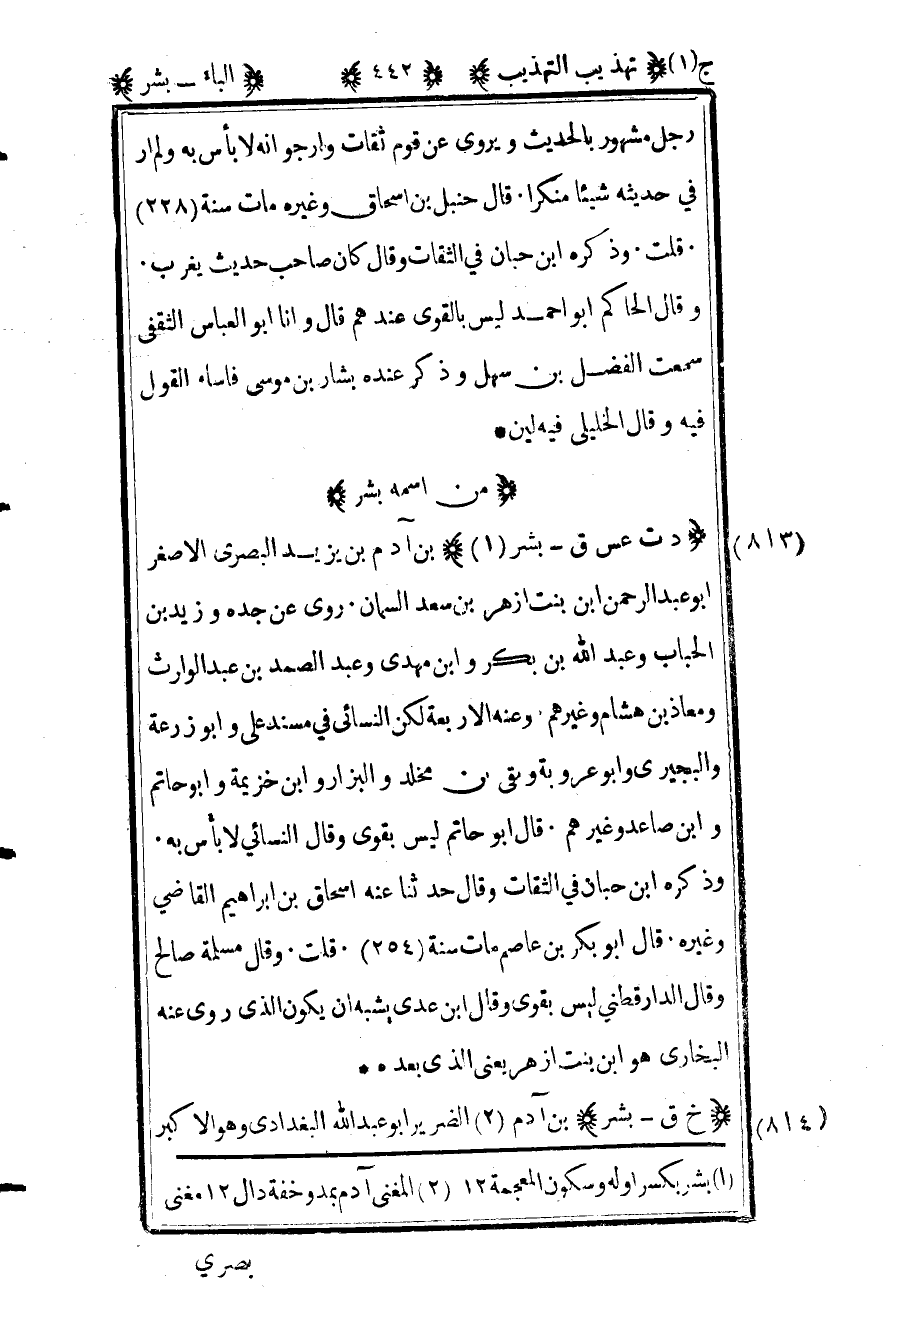 ج(١) ﴿ تهذيب التهذيب ﴾ ﴿ ٤٤٢ ﴾ ﴿ الباء ـ بشر ﴾
رجل مشهور بالحديث ويروى عن قوم ثقات وارجو انه لا بأس به ولم ار
في حديثه شيئا منكرا٠ قال حنبل بن اسحاق وغيره مات سنة (٢٢٨)
٠ قلت ٠ وذكره ابن حبان في الثقات وقال كان صاحب حديث يغرب ٠
وقال الحاكم ابو احمد ليس بالقوى عندهم قال وانا ابو العباس الثقفى
سمعت الفضل بن سهل وذكر عنده بشار بن موسى فاساء القول
فيه وقال الخليلى فيه لين *
﴿ من اسمه بشر ﴾
(٨١٣) ﴿ د ت عس ق ـ بشر (١) ﴾ بن آدم بن يزيد البصرى الاصغر
ابو عبد الرحمن ابن بنت ازهر بن سعد السمان ٠ روى عن جده وزيد بن
الحباب وعبد الله بن بكر وابن مهدى وعبد الصمد بن عبد الوارث
ومعاذ بن هشام وغيرهم ٠ وعنه الاربعة لكن النسائى في مسند على وابو زرعة
والبجيرى وابو عروبة وبقى بن مخلد والبزار وابن خزيمة وابو حاتم
وابن صاعد وغيرهم ٠ قال ابو حاتم ليس بقوى وقال النسائي لا بأس به ٠
وذكره ابن حبان في الثقات وقال حدثنا عنه اسحاق بن ابراهيم القاضي
وغيره ٠ قال ابو بكر بن عاصم مات سنة (٢٥٤) ٠ قلت ٠ وقال مسلمة صالح
وقال الدارقطني ليس بقوى وقال ابن عدى يشبه ان يكون الذى روى عنه
البخارى هو ابن بنت ازهر يعنى الذى بعده * *
(٨١٤) ﴿ خ ق ـ بشر ﴾ بن آدم (٢) الضرير ابو عبد الله البغدادى وهو الاكبر
(١) بشر بكسر اوله وسكون المعجمة ١٢ (٢) المغنى آدم بمد وخفة دال ١٢ مغنى
بصري